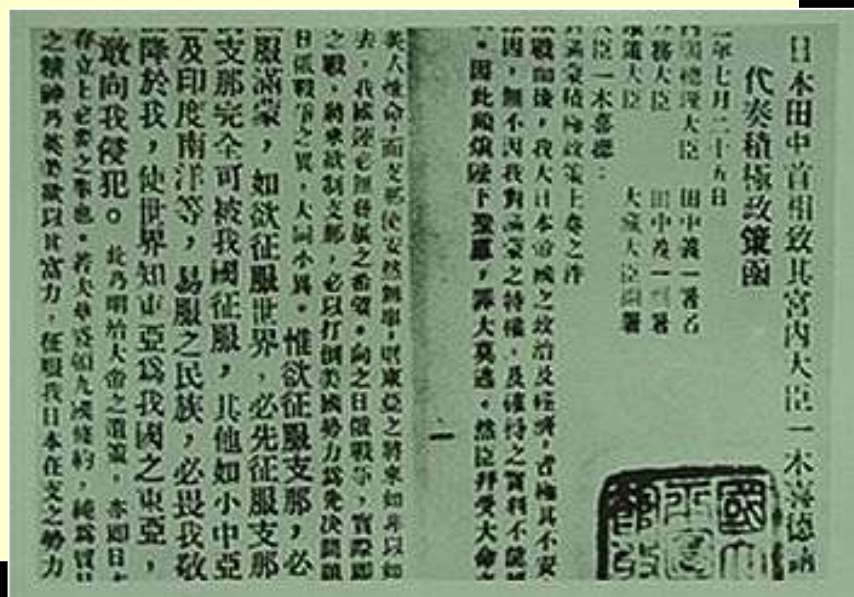 日本田中首相致其宮內大臣一木喜德請
代奏積極政策函
年七月二十五日
內閣總理大臣 田中義一署名
務大臣 田中義一署
道大臣 大藏大臣副署
大臣一木喜德:
對滿蒙積極政策上奏之件
戰而後,我大日本帝國之政治及經濟,皆極其不安
因,無不因我對滿蒙之特權,及確得之實利不能
。因此頗煩陛下聖慮,罪大莫逃。然臣拜受大命
一
英人性命,而支那使安然無事,則東亞之將來如非以如
去,我國運必無發展之希望。向之日俄戰爭,實際即
之戰,將來欲制支那,必以打倒美國勢力為先決問題
日俄戰爭之異,大同小異。惟欲征服支那,必
服滿蒙,如欲征服世界,必先征服支那
支那完全可被我國征服,其他如小中亞
及印度南洋等,易服之民族,必畏我敬
降於我,使世界知東亞為我國之東亞,
敢向我侵犯。此乃明治大帝之遺策,亦即日本
存立上必要之事也。若夫華盛頓九國條約,純為貿易
之精神乃英美欲以其富力,征服我日本在支之勢力